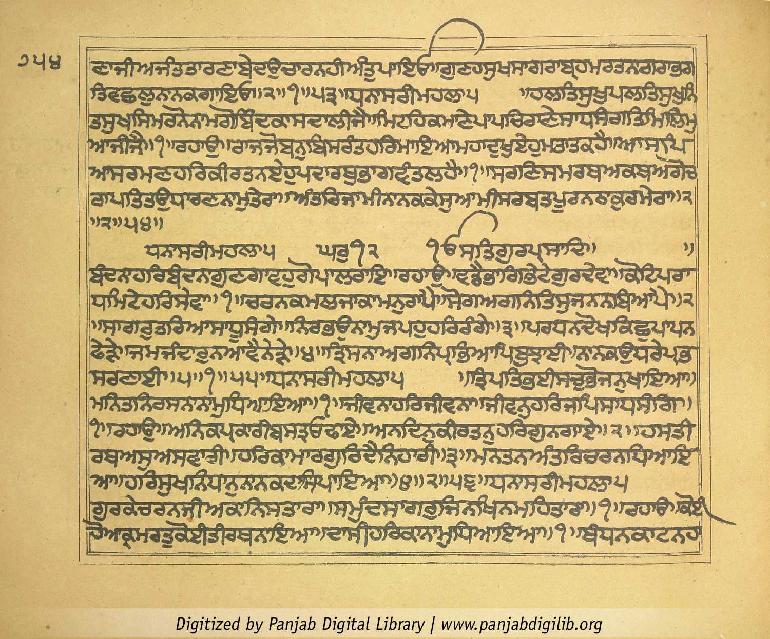 ੭੫੪
ਣਾਜੀਅਜੰਤਤਾਰਣਾਬੇਦਉਚਾਰਨਹੀਅੰਤੁਪਾਇਓ॥ਗੁਣਹਸੁਖਸਾਗਰਾਬ੍ਰਹਮਰਤਨਗਰਾਭਗ
ਤਿਵਛਲੁਨਾਨਕਗਾਇਓ॥੨॥੧॥੫੩॥ਧਨਾਸਰੀਮਹਲਾ੫ ॥ਹਲਤਿਸੁਖੁਪਲਤਿਸੁਖੁਨਿ
ਤਸੁਖੁਸਿਮਰਨੋਨਾਮੁਗੋਬਿੰਦਕਾਸਦਾਲੀਜੈ॥ਮਿਟਹਿਕਮਾਣੇਪਾਪਚਿਰਾਣੇਸਾਧਸੰਗਤਿਮਿਲਿਮੁ
ਆਜੀਜੈ॥੧॥ਰਹਾਉ॥ਰਾਜਜੋਬਨੁਬਿਸਰੰਤਹਰਿਮਾਇਆਮਹਾਦੁਖੁਏਹੁਮਹਾਤਕਹੈ॥ਆਸਪਿ
ਆਸਰਮਣਹਰਿਕੀਰਤਨਏਹੁਪਦਾਰਥੁਭਾਗਵੰਤੁਲਹੈ॥੧॥ਸਰਣਿਸਮਰਥਅਕਥਅਗੋਚ
ਰਾਪਤਿਤਉਧਾਰਣਨਾਮੁਤੇਰਾ॥ਅੰਤਰਿਜਾਮੀਨਾਨਕਕੇਸੁਆਮੀਸਰਬਤਪੂਰਨਠਾਕੁਰਮੇਰਾ॥੨
॥੨॥੫੪॥
ਧਨਾਸਰੀਮਹਲਾ੫ ਘਰੁ੧੨ ੴਸਤਿਗੁਰਪ੍ਰਸਾਦਿ॥ ॥
ਬੰਦਨਹਰਿਬੰਦਨਗੁਣਗਾਵਹੁਗੋਪਾਲਰਾਇ॥ਰਹਾਉ॥ਵਡੈਭਾਗਿਭੇਟੇਗੁਰਦੇਵਾ॥ਕੋਟਿਪਰਾ
ਧਮਿਟੇਹਰਿਸੇਵਾ॥੧॥ਚਰਨਕਮਲਜਾਕਾਮਨੁਰਾਪੈ॥ਸੋਗਅਗਨਿਤਿਸੁਜਨਨਬਿਆਪੈ॥੨
॥ਸਾਗਰੁਤਰਿਆਸਾਧੂਸੰਗੇ॥ਨਿਰਭਉਨਾਮੁਜਪਹੁਹਰਿਰੰਗੇ॥੩॥ਪਰਧਨਦੋਖਕਿਛੁਪਾਪਨ
ਫੇੜੇ॥ਜਮਜੰਦਾਰੁਨਆਵੈਨੇੜੇ॥੪॥ਤ੍ਰਿਸਨਾਅਗਨਿਪ੍ਰਭਿਆਪਿਬੁਝਾਈ॥ਨਾਨਕਉਧਰੇਪ੍ਰਭ
ਸਰਣਾਈ॥੫॥੧॥੫੫॥ਧਨਾਸਰੀਮਹਲਾ੫ ॥ਤ੍ਰਿਪਤਿਭਈਸਚੁਭੋਜਨੁਖਾਇਆ॥
ਮਨਿਤਨਿਰਸਨਾਨਾਮੁਧਿਆਇਆ॥੧॥ਜੀਵਨਾਹਰਿਜੀਵਨਾ॥ਜੀਵਨੁਹਰਿਜਪਿਸਾਧਸੰਗਿ॥
੧॥ਰਹਾਉ॥ਅਨਿਕਪ੍ਰਕਾਰੀਬਸਤ੍ਰਓਢਾਏ॥ਅਨਦਿਨੁਕੀਰਤਨੁਹਰਿਗੁਨਗਾਏ॥੨॥ਹਸਤੀ
ਰਥਅਸੁਅਸਵਾਰੀ॥ਹਰਿਕਾਮਾਰਗੁਰਿਦੈਨਿਹਾਰੀ॥੩॥ਮਨਤਨਅੰਤਰਿਚਰਨਧਿਆਇ
ਆ॥ਹਰਿਸੁਖਨਿਧਾਨੁਨਾਨਕਦਾਸਿਪਾਇਆ॥੪॥੨॥੫੬॥ਧਨਾਸਰੀਮਹਲਾ੫
ਗੁਰਕੇਚਰਨਜੀਅਕਾਨਿਸਤਾਰਾ॥ਸਮੁੰਦਸਾਗਰੁਜਿਨਿਖਿਨਮਹਿਤਾਰਾ॥੧॥ਰਹਾਉ॥ਕੋਈ
ਹੋਆਕ੍ਰਮਰਤੁਕੋਈਤੀਰਥਨਾਇਆ॥ਦਾਸੀਹਰਿਕਾਨਾਮੁਧਿਆਇਆ॥੧॥ਬੰਧਨਕਾਟਨਹਾ
Digitized by Panjab Digital Library | www.panjabdigilib.org